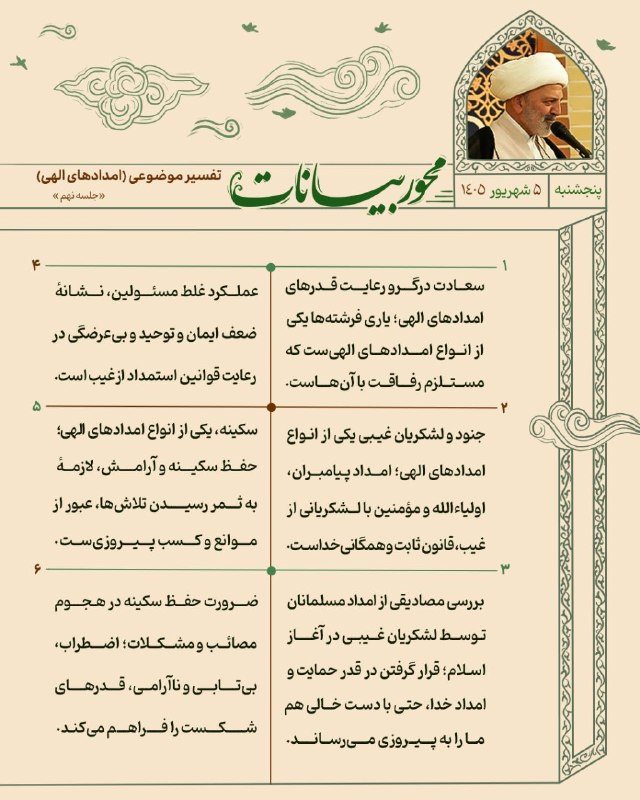 پنجشنبه
۵ شهریور ۱۴۰۵
محور بیانات
تفسیر موضوعی (امدادهای الهی)
«جلسه نهم»
۱
سعادت درگرو رعایت قدرهای
امدادهای الهی؛ یاری فرشته‌ها یکی
از انواع امدادهای الهی‌ست که
مستلزم رفاقت با آن‌هاست.
۲
جنود و لشکریان غیبی یکی از انواع
امدادهای الهی؛ امداد پیامبران،
اولیاءالله و مؤمنین با لشکریانی از
غیب، قانون ثابت و همگانی خداست.
۳
بررسی مصادیقی از امداد مسلمانان
توسط لشکریان غیبی در آغاز
اسلام؛ قرار گرفتن در قدر حمایت و
امداد خدا، حتی با دست خالی هم
ما را به پیروزی می‌رساند.
۴
عملکرد غلط مسئولین، نشانهٔ
ضعف ایمان و توحید و بی‌عرضگی در
رعایت قوانین استمداد از غیب است.
۵
سکینه، یکی از انواع امدادهای الهی؛
حفظ سکینه و آرامش، لازمهٔ
به ثمر رسیدن تلاش‌ها، عبور از
موانع و کسب پیروزی‌ست.
۶
ضرورت حفظ سکینه در هجوم
مصائب و مشکلات؛ اضطراب،
بی‌تابی و ناآرامی، قدرهای
شکست را فراهم می‌کند.